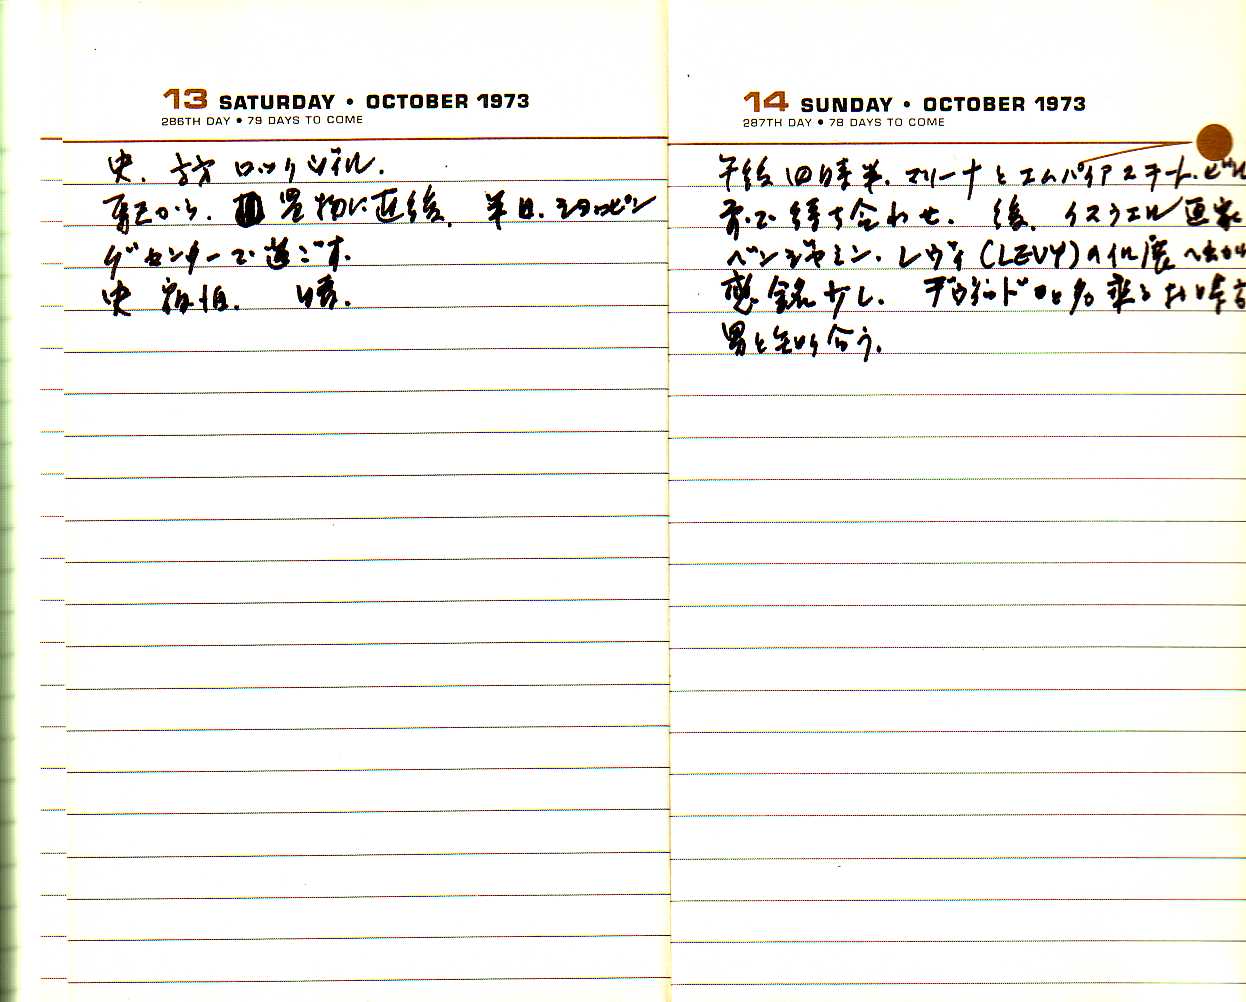 13 SATURDAY • OCTOBER 1973
286TH DAY • 79 DAYS TO COME
史、 ロックヴィル.
から. 買物に 後. 半日. ショッピン
グセンターで過ごす.
史
14 SUNDAY • OCTOBER 1973
287TH DAY • 78 DAYS TO COME
午後四時半. マリーナとエムパイアステート・ビル
前で待ち合わせ. 後. イスラエル画家
ベンジャミン・レヴィ(LEVY)の個展へ出か
感銘少し. デヴィッド と名乗る
男と知り合う.